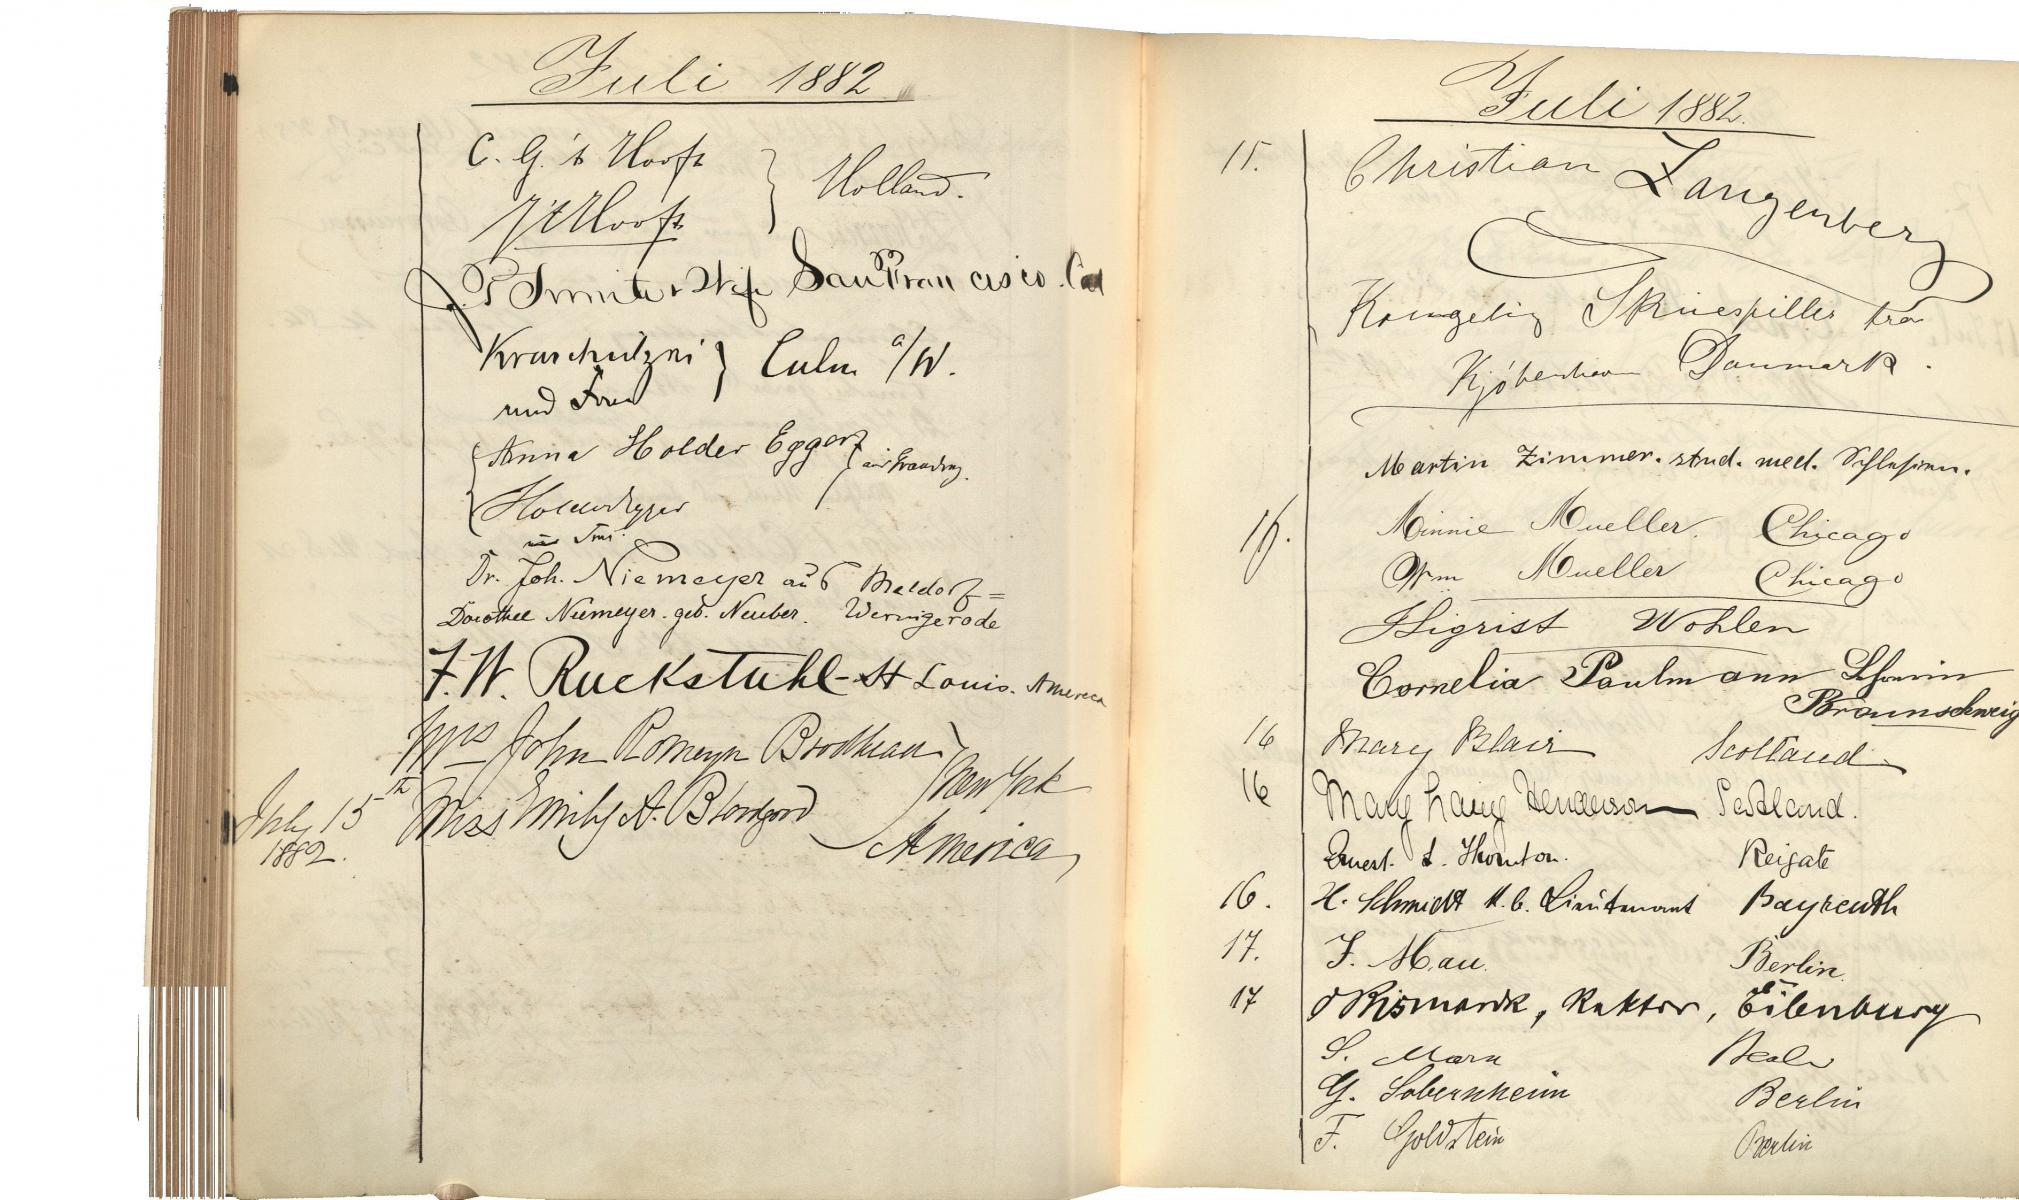 Juli 1882
C. G. 't Hooft
J 't Hooft
Holland.
San Francisco. Cal
und Frau
Culm a/W.
Anna Holder Egger
Dr. Joh. Niemeyer aus Meldorf =
Dorothee Niemeyer. geb. Neuber. Wernigerode
F. W. Ruckstuhl - St Louis. America
Mrs John Romeyn Brodhead
New York
July 15th
1882.
Miss Emily A. Bloodgood
America
Juli 1882.
15. Christian Zangenberg
Kongelig Skuespiller fra
Kjøbenhavn Danmark.
Martin Zimmer. stud. med. Schlesien.
Minnie Mueller. Chicago
Wm Mueller Chicago
Sigrist Wohlen
Cornelia Paulmann
Braunschweig
16 Mary Blair Scotland
16 Mary Laing Henderson Scotland.
Ernest L. Thornton. Reigate
16. H. Schmidt Lieutenant Bayreuth
17. F. Mau. Berlin.
17 Bismarck, Rektor, Eilenburg
S.
G. Sobernheim Berlin
F. Goldstein Berlin